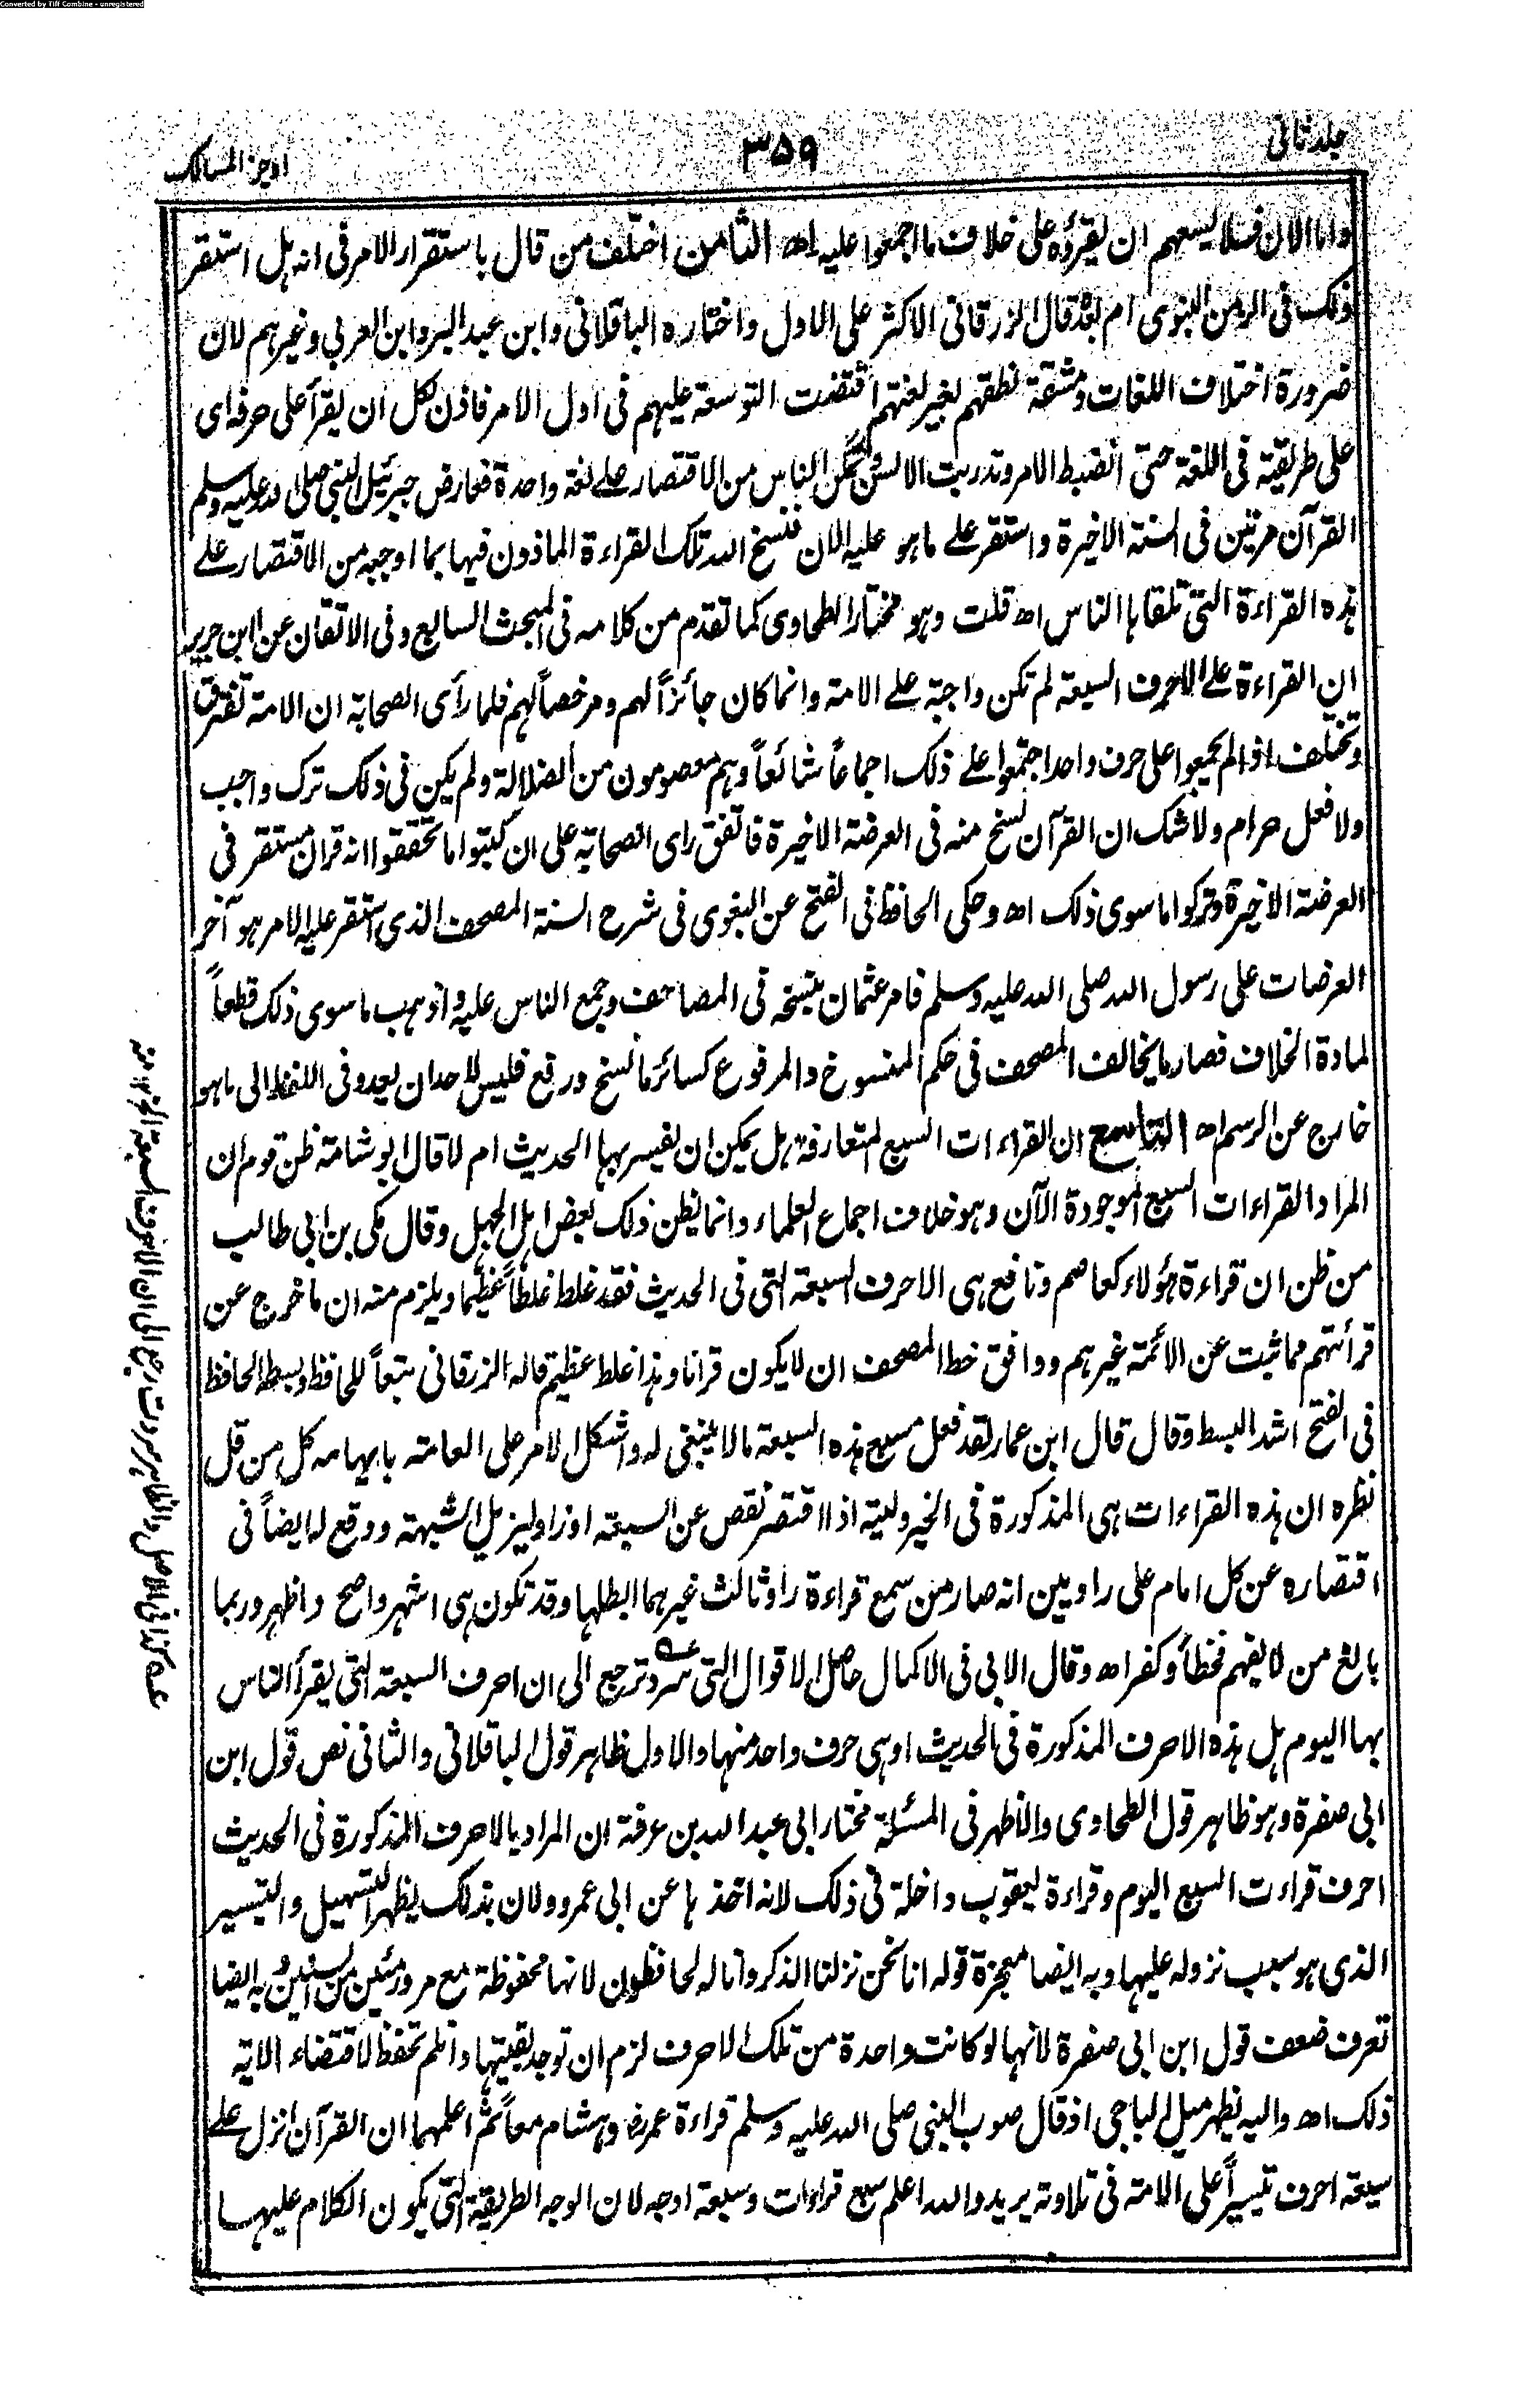 Converted by Tiff Combine - unregistered
جلد ثانی
۳۵۹
اوجز المسالک
واما الان فلا یسعهم ان یقرؤه علی خلاف ما اجمعوا علیه اه الثامن اختلف من قال باستقرار الامر فی انه ہل استقر
ذلک فی الزمن النبوی ام بعده قال الزرقانی الاکثر علی الاول واختاره الباقلانی وابن عبد البر وابن العربی وغیرہم لان
ضرورة اختلاف اللغات ومشقة نطقهم بغیر لغتهم اقتضت التوسعة علیہم فی اول الامر فاذن لکل ان یقرأ علی حرفه ای
علی طریقته فی اللغة حتی انضبط الامر وتدربت الالسن وتمکن الناس من الاقتصار علے لغة واحدة فعارض جبرئیل النبی صلی الله علیه وسلم
القرآن مرتین فی السنة الاخیرة واستقر علے ما هو علیه الان فنسخ الله تلک القراءة الماذون فیها بما اوجبه من الاقتصار علے
ہذه القراءة التی تلقاہا الناس اه قلت وہو مختار الطحاوی کما تقدم من کلامه فی المبحث السابع وفی الاتقان عن ابن جریر
ان القراءة علے الاحرف السبعة لم تکن واجبة علے الامة وانما کان جائزاً لهم ومرخصاً لهم فلما رأی الصحابة ان الامة تفترق
وتختلف اذا لم یجمعوا علی حرف واحد اجتمعوا علے ذلک اجماعاً شائعاً وہم معصومون من الضلالة ولم یکن فی ذلک ترک واجب
ولا فعل حرام ولا شک ان القرآن نسخ منه فی العرضة الاخیرة فاتفق رای الصحابة علی ان کتبوا ما تحققوا انه قران مستقر فی
العرضة الاخیرة وترکوا ما سوی ذلک اه وحکی الحافظ فی الفتح عن البغوی فی شرح السنة المصحف الذی استقر علیه الامر ہو آخر
العرضات علی رسول الله صلی الله علیه وسلم فامر عثمان بنسخه فی المصاحف وجمع الناس علیه واذہب ما سوی ذلک قطعاً
لمادة الخلاف فصار ما یخالف المصحف فی حکم المنسوخ والمرفوع کسائر ما نسخ ورفع فلیس لاحد ان یعدو فی اللفظ الی ما ہو
خارج عن الرسم اه التاسع ان القراءات السبع المتعارفة ہل یمکن ان یفسر بہا الحدیث ام لا قال ابو شامة ظن قوم ان
المراد القراءات السبع الموجودة الآن وہو خلاف اجماع العلماء وانما یظن ذلک بعض اہل الجہل وقال مکی بن ابی طالب
من ظن ان قراءة ہؤلاء کعاصم ونافع ہی الاحرف السبعة التی فی الحدیث فقد غلط غلطاً عظیما ویلزم منه ان ما خرج عن
قرأتہم مما ثبت عن الائمة غیرہم ووافق خط المصحف ان لا یکون قرانا وہذا غلط عظیم قاله الزرقانی تبعاً للحافظ وبسط الحافظ
فی الفتح اشد البسط وقال قال ابن عمار لقد فعل مسبع ہذه السبعة ما لا ینبغی له واشکل الامر علی العامة بایہامه کل من قل
نظره ان ہذه القراءات ہی المذکورة فی الخبر ولیته اذ اقتصر نقص عن السبعة او زاد لیزیل الشبہة ووقع له ایضاً فی
اقتصاره عن کل امام علی راویین انه صار من سمع قراءة راو ثالث غیرہما ابطلہا وقد تکون ہی اشہر واصح واظہر وربما
بالغ من لا یفہم فخطأ وکفر اه وقال الابی فی الاکمال حاصل الاقوال التی سرد ترجع الی ان احرف السبعة التی یقرأ الناس
بہا الیوم ہل ہذه الاحرف المذکورة فی الحدیث او ہی حرف واحد منہا والاول ظاہر قول الباقلانی والثانی نص قول ابن
ابی صفرة وہو ظاہر قول الطحاوی والاظہر فی المسئلة مختار ابی عبد الله بن عرفة ان المراد بالاحرف المذکورة فی الحدیث
احرف قراءت السبع الیوم وقراءة یعقوب داخلة فی ذلک لانه اخذ ہا عن ابی عمرو ولان بذلک یظہر التسہیل والتیسیر
الذی ہو سبب نزوله علیہا وبه ایضا معجزة قوله انا نحن نزلنا الذکر وانا له لحافظون لانہا محفوظة مع مرور مئین من السنین وبه ایضا
تعرف ضعف قول ابن ابی صفرة لانہا لو کانت واحدة من تلک الاحرف لزم ان توجد بقیتہا واتلم تحفظ لاقتضاء الایة
ذلک اه والیه یظہر میل الباجی اذ قال صوب النبی صلی الله علیه وسلم قراءة عمر وہشام معاً ثم اعلمہما ان القرآن انزل علے
سبعة احرف تیسیراً علی الامة فی تلاوته یرید والله اعلم سبع قراءات وسبعة اوجه لان الوجه الطریقة التی یکون الکلام علیہا
عه کذا فی الاصل والظاہر سردت ترجع الی ان الاحرف السبعة الخ